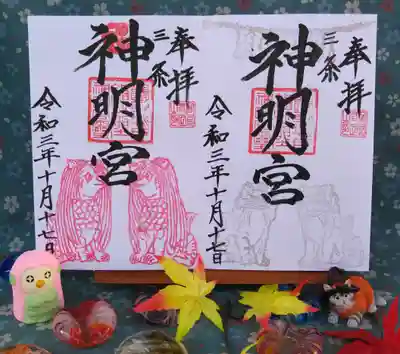 奉拝
三条
神明宮
令和三年十月十七日
奉拝
三条
神明宮
令和三年十月十七日